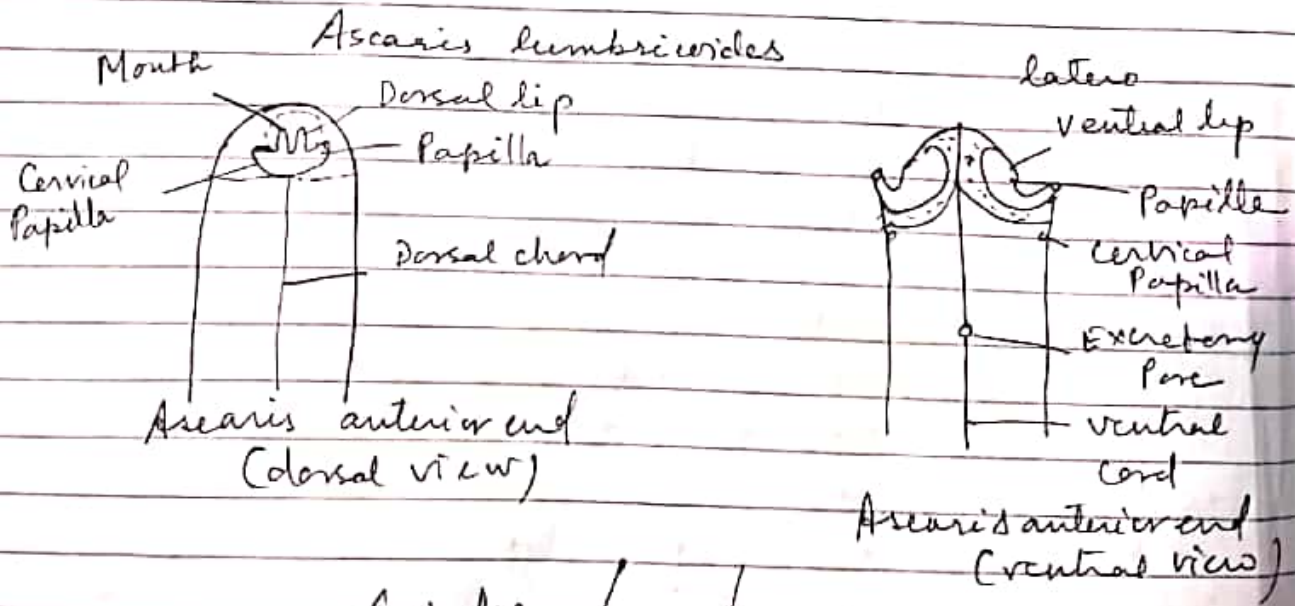 Ascaris lumbricoides
Mouth
Dorsal lip
Papilla
Cervical
Papilla
Dorsal chord
Ascaris anterior end
(dorsal view)
latero
ventral lip
Papilla
Cervical
Papilla
Excretory
Pore
ventral
cord
Ascaris anterior end
(ventral view)